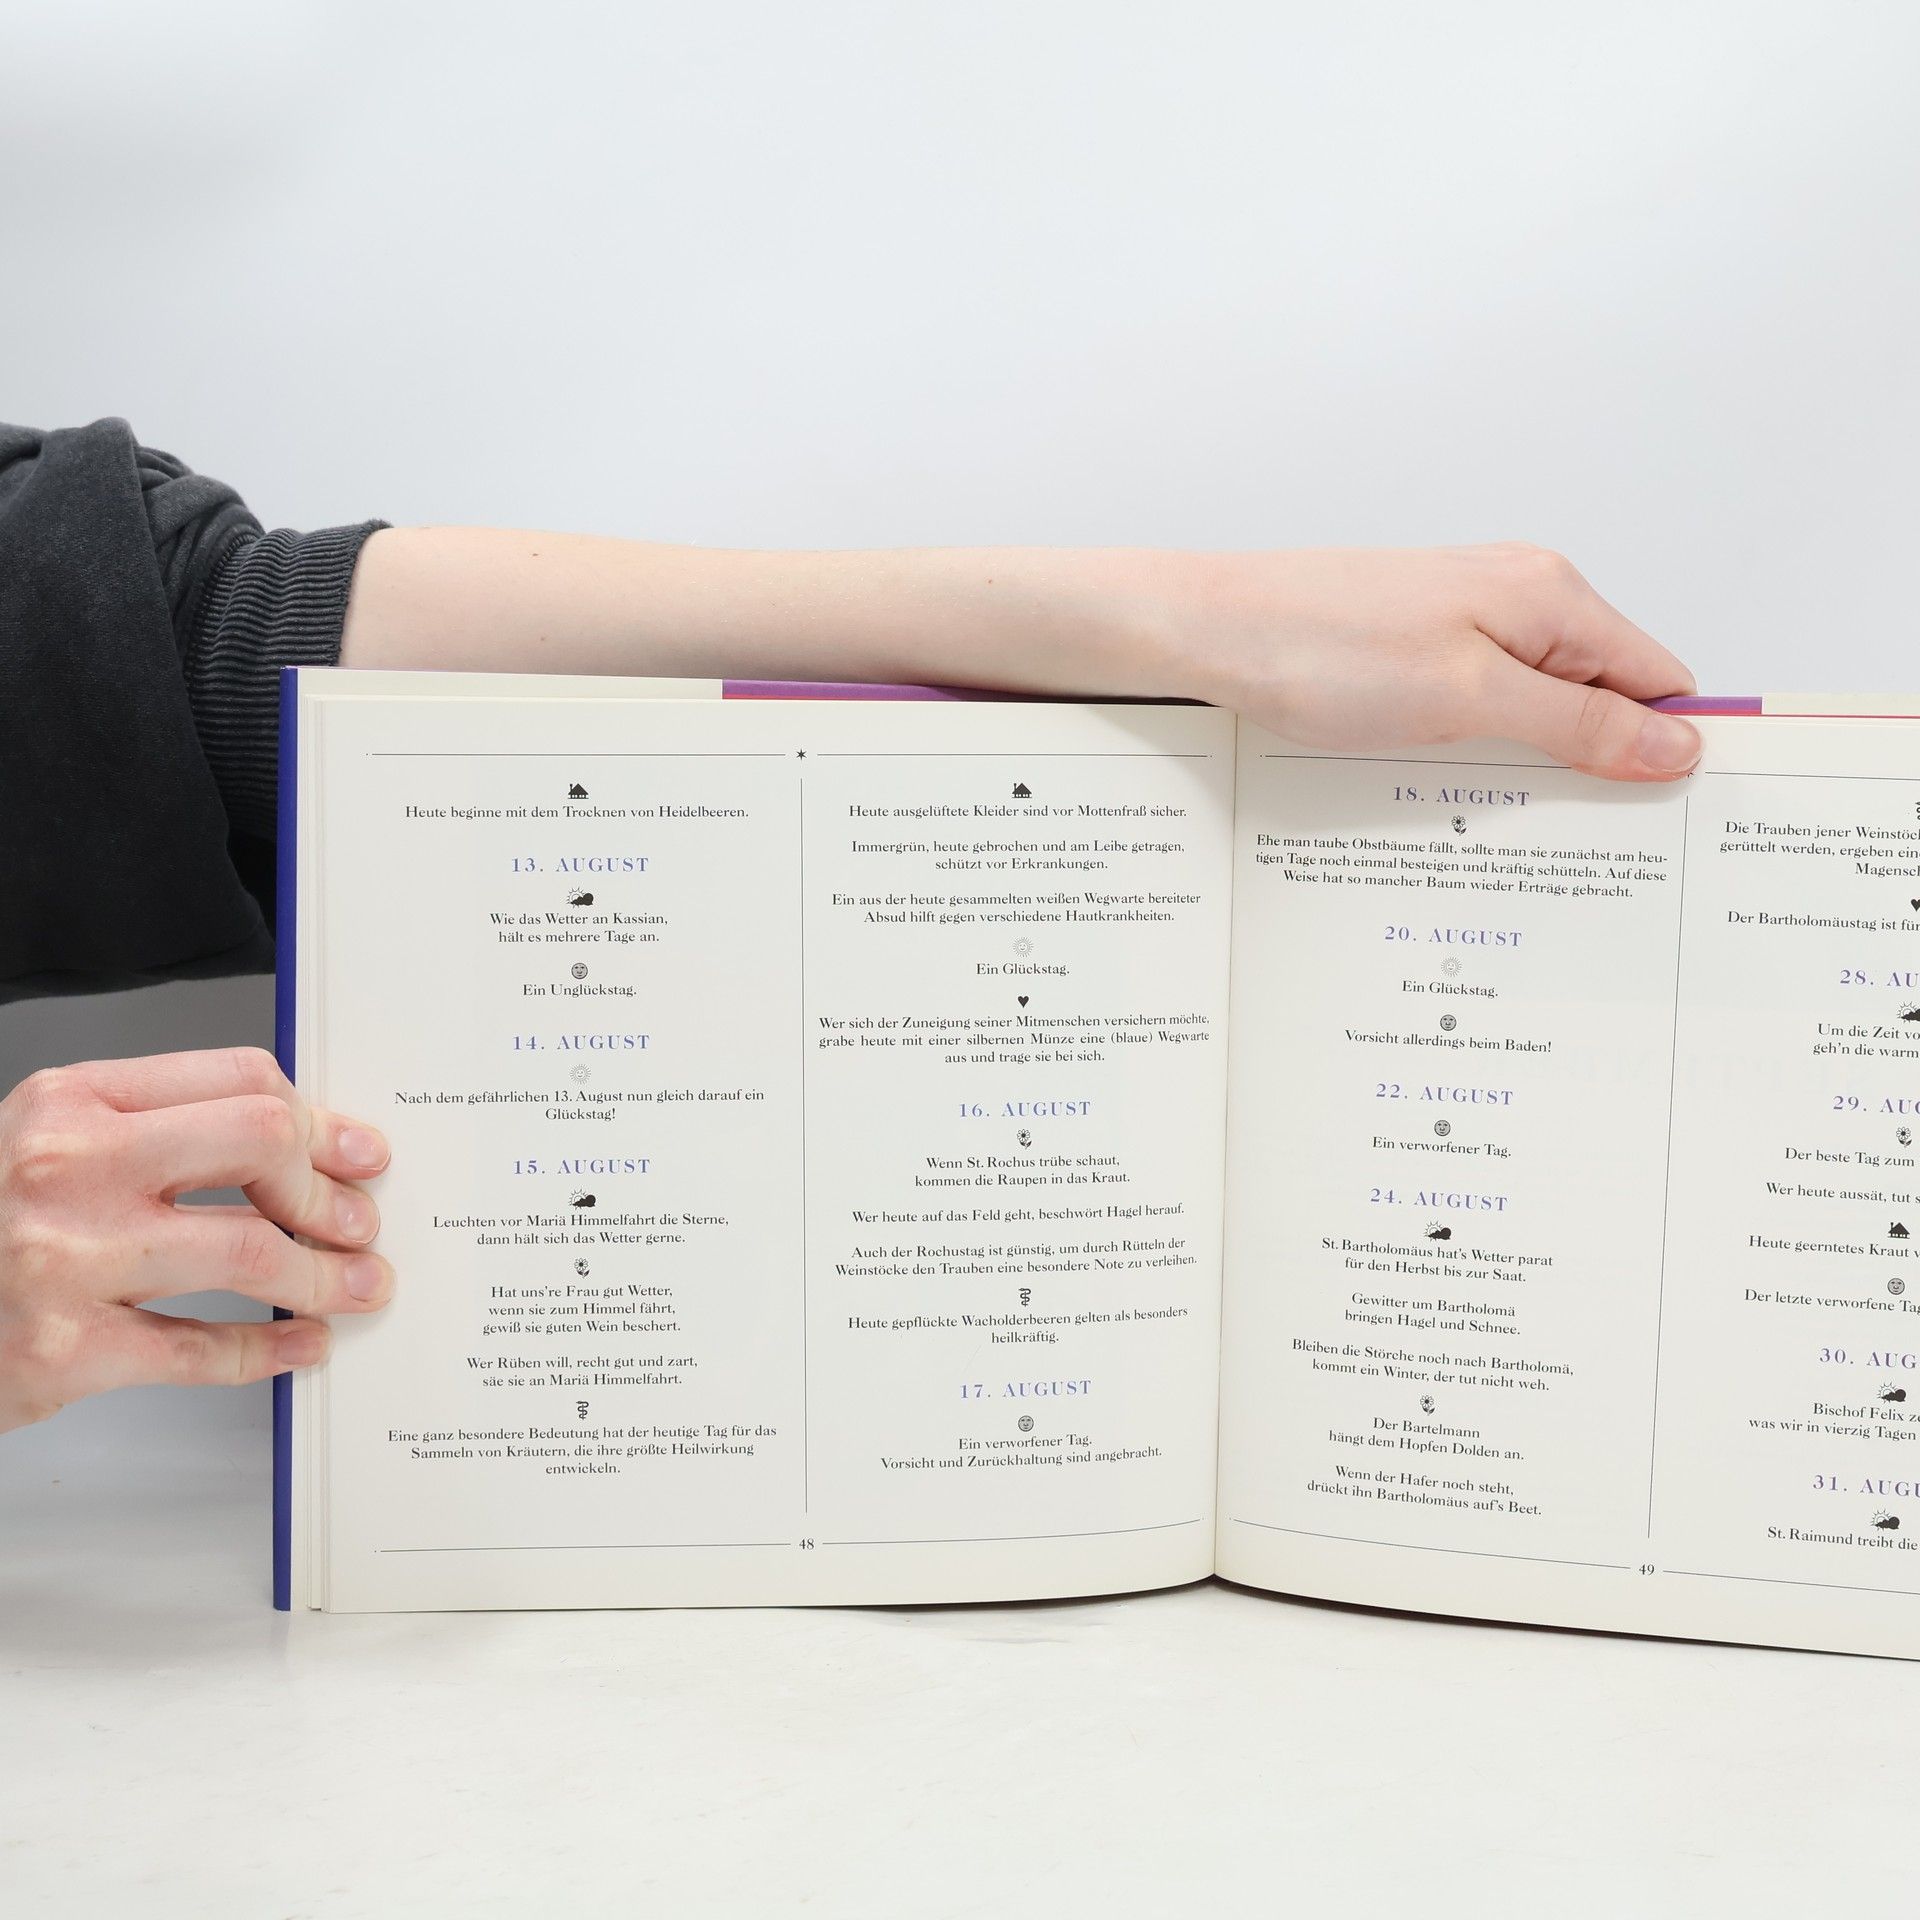 Heute beginne mit dem Trocknen von Heidelbeeren.
13. AUGUST
Wie das Wetter an Kassian,
hält es mehrere Tage an.
Ein Unglückstag.
14. AUGUST
Nach dem gefährlichen 13. August nun gleich darauf ein
Glückstag!
15. AUGUST
Leuchten vor Mariä Himmelfahrt die Sterne,
dann hält sich das Wetter gerne.
Hat uns're Frau gut Wetter,
wenn sie zum Himmel fährt,
gewiß sie guten Wein beschert.
Wer Rüben will, recht gut und zart,
säe sie an Mariä Himmelfahrt.
Eine ganz besondere Bedeutung hat der heutige Tag für das
Sammeln von Kräutern, die ihre größte Heilwirkung
entwickeln.
Heute ausgelüftete Kleider sind vor Mottenfraß sicher.
Immergrün, heute gebrochen und am Leibe getragen,
schützt vor Erkrankungen.
Ein aus der heute gesammelten weißen Wegwarte bereiteter
Absud hilft gegen verschiedene Hautkrankheiten.
Ein Glückstag.
Wer sich der Zuneigung seiner Mitmenschen versichern möchte,
grabe heute mit einer silbernen Münze eine (blaue) Wegwarte
aus und trage sie bei sich.
16. AUGUST
Wenn St. Rochus trübe schaut,
kommen die Raupen in das Kraut.
Wer heute auf das Feld geht, beschwört Hagel herauf.
Auch der Rochustag ist günstig, um durch Rütteln der
Weinstöcke den Trauben eine besondere Note zu verleihen.
Heute gepflückte Wacholderbeeren gelten als besonders
heilkräftig.
17. AUGUST
Ein verworfener Tag.
Vorsicht und Zurückhaltung sind angebracht.
48
18. AUGUST
Ehe man taube Obstbäume fällt, sollte man sie zunächst am heu-
tigen Tage noch einmal besteigen und kräftig schütteln. Auf diese
Weise hat so mancher Baum wieder Erträge gebracht.
20. AUGUST
Ein Glückstag.
Vorsicht allerdings beim Baden!
22. AUGUST
Ein verworfener Tag.
24. AUGUST
St. Bartholomäus hat's Wetter parat
für den Herbst bis zur Saat.
Gewitter um Bartholomä
bringen Hagel und Schnee.
Bleiben die Störche noch nach Bartholomä,
kommt ein Winter, der tut nicht weh.
Der Bartelmann
hängt dem Hopfen Dolden an.
Wenn der Hafer noch steht,
drückt ihn Bartholomäus auf's Beet.
Die Trauben jener Weinstöc
gerüttelt werden, ergeben ein
Magensc
Der Bartholomäustag ist für
28. AU
Um die Zeit vo
geh'n die warm
29. AUG
Der beste Tag zum
Wer heute aussät, tut s
Heute geerntetes Kraut v
Der letzte verworfene Tag
30. AUG
Bischof Felix ze
was wir in vierzig Tagen
31. AUGU
St. Raimund treibt die
49